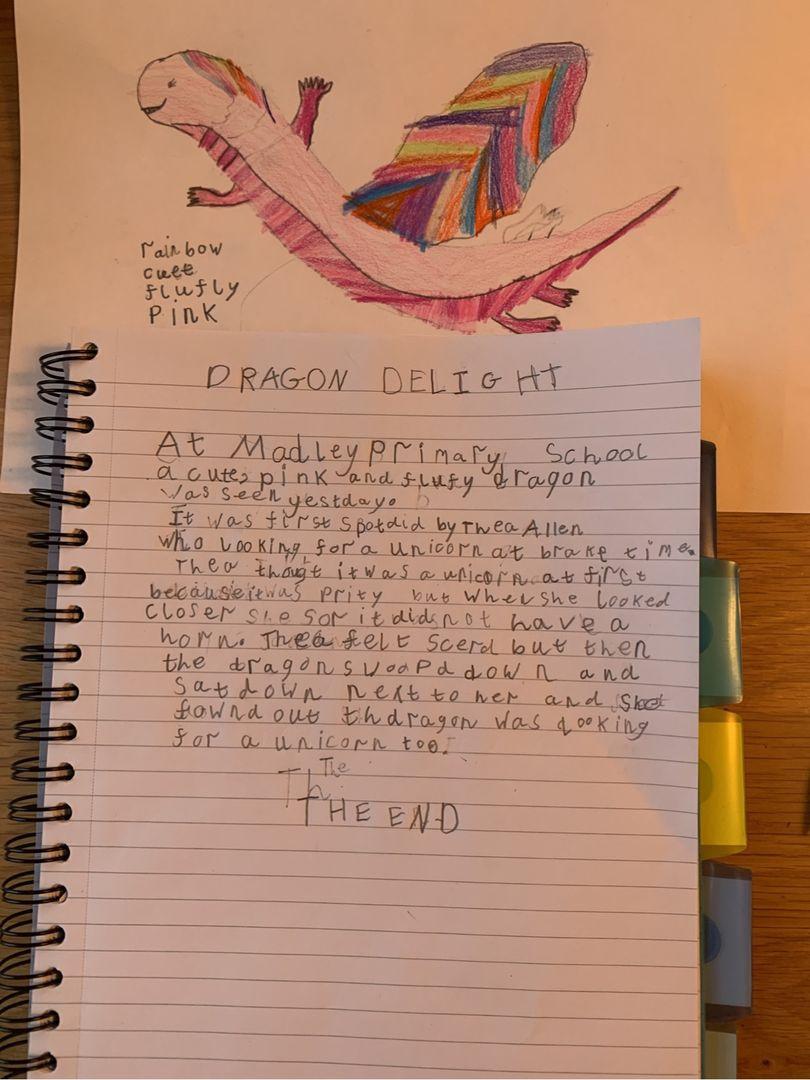 rainbow
cute
flufly
Pink
DRAGON DELIGHT
At Madley Primary School
a cute, pink and flufy dragon
was seen yestday.
It was first spotdid by Thea Allen
who looking for a unicorn at brake time.
Thea thought it was a unicorn at first
because it was prity but when she looked
closer she sor it did not have a
horn. Thea felt scerd but then
the dragon swoopd down and
sat down next to her and She
fownd out th dragon was looking
for a unicorn too.
The
Th
THE END